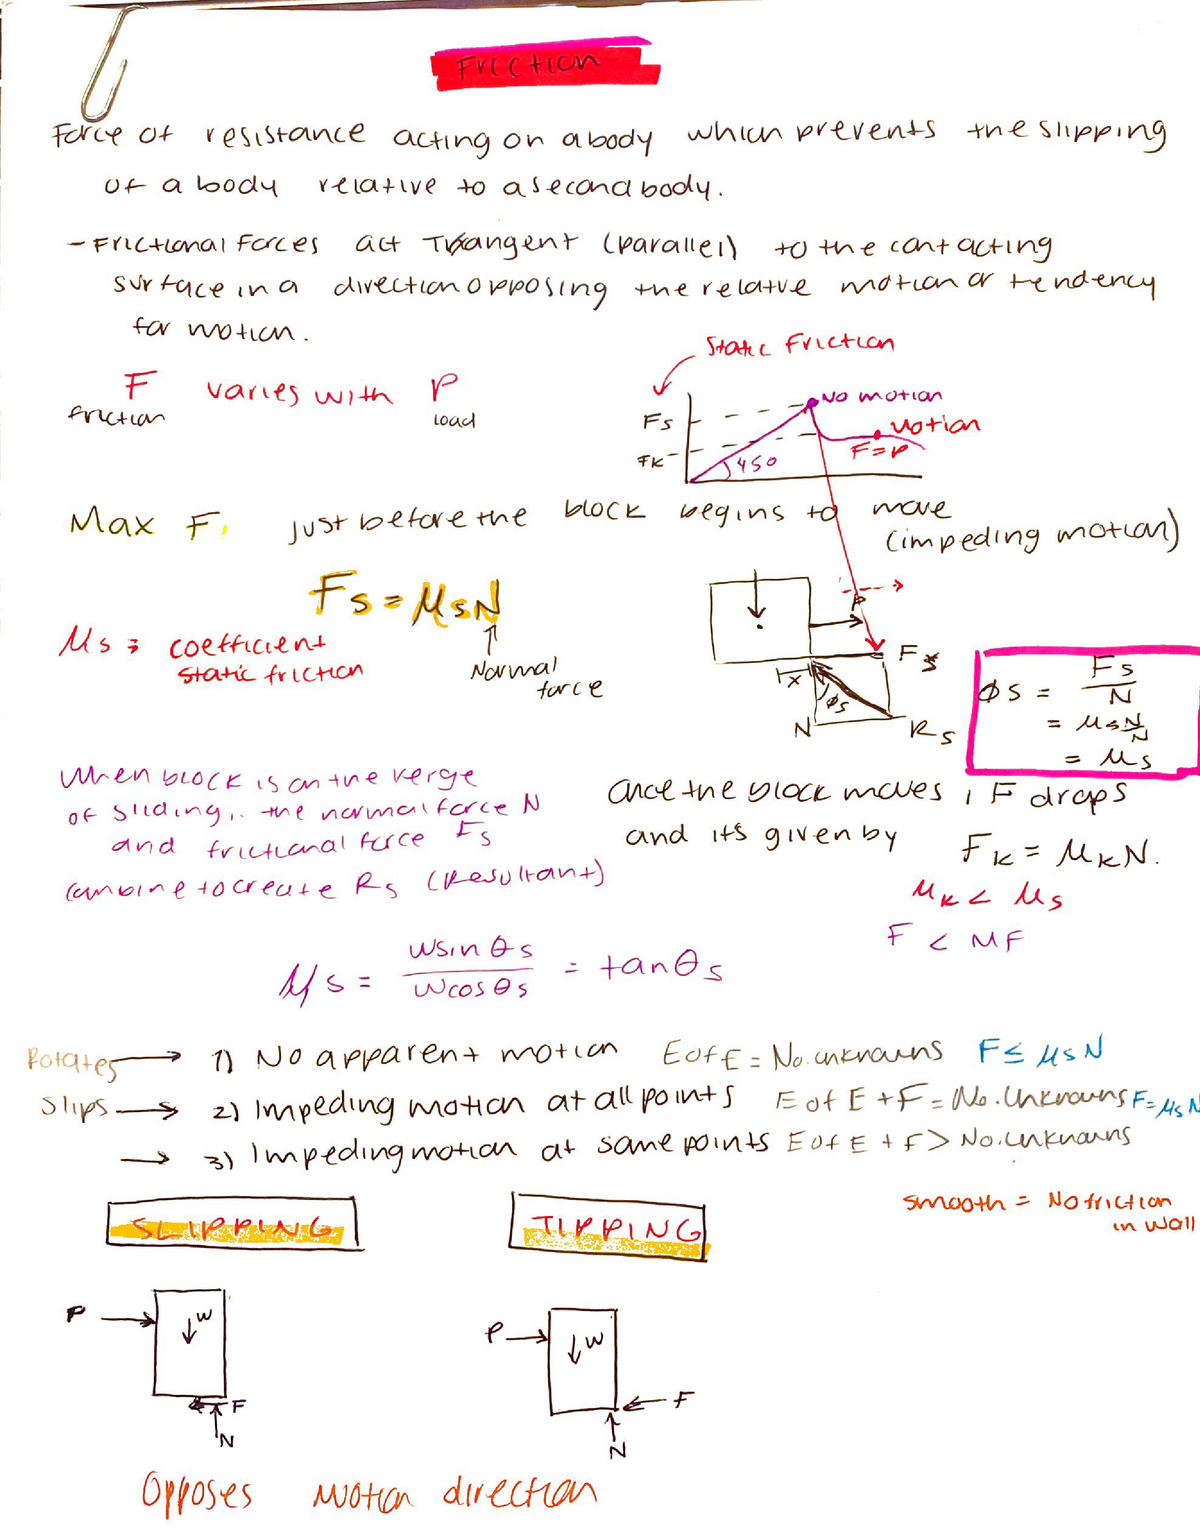 Friction
Force of resistance acting on a body which prevents the slipping
of a body relative to a second body.
- Frictional Forces act Tangent (parallel) to the contacting
surface in a direction opposing the relatve motion or tendency
for motion.
Static Friction
F varies with P
friction load
Fs
FK
No motion
Motion
F=P
450
Max F, just before the block begins to move
(impeding motion)
Fs = μsN
μs = coefficient
static friction
Normal
force
P
Fs
x
φs
N
Rs
φs = Fs/N
= μsN/N
= μs
When block is on the verge
of sliding, the normal force N
and frictional force Fs
combine to create Rs (Resultant)
Once the block moves, F drops
and its given by FK = μKN.
μK < μs
F < MF
μs = Wsin θs / Wcos θs = tan θs
Rotates → 1) No apparent motion E of E = No. unknowns F ≤ μsN
Slips → 2) Impeding motion at all points E of E + F = No. Unknowns F = μsN
→ 3) Impeding motion at some points E of E + F > No. unknowns
smooth = No friction
in wall
SLIPPING
TIPPING
P
W
F
N
P
W
F
N
Opposes motion direction